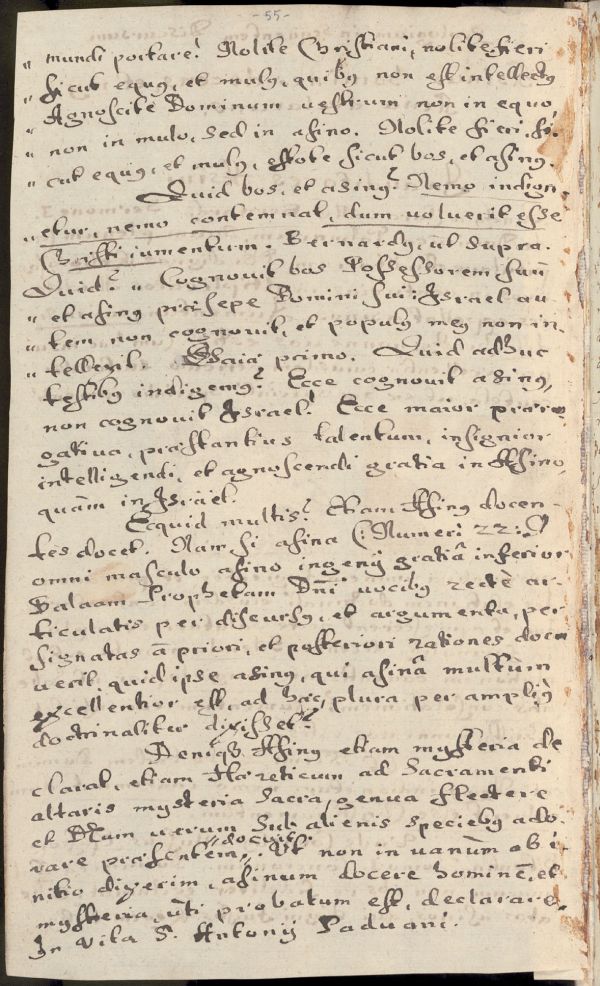 -55-
" mundi portare! Nolite Christiani, nolite fieri
" sicut equ9, et mul9, quib9 non est intellect9
" Agnoscite Dominum vestrum non in equo,
" non in mulo, sed in asino. Nolite fieri, si-
" cut equ9, et mul9, estote sicut bos, et asin9.
Quid bos, et asin9? Nemo indign-
" etur, nemo contemnat, dum voluerit esse
Christi iumentum. Bernard9, ut supra.
Quid? " Cognovit bos Possessorem suū
" et asin9 præsepe Domini sui: Israel au-
" tem non cognovit, et popul9 me9 non in-
" tellexit. Isaiæ primo. Quid adhuc
testib9 indigem9? Ecce cognovit asin9,
non cognovit Israel! Ecce maior præro-
gativa, præstantius talentum, insignior
intelligendi, et agnoscendi gratia in Asino,
quàm in Israel.
Ecquid multis? Etiam Asin9 docen-
tes docet. Nam si asina (: Numeri 22: )
omni masculo asino ingenij gratiâ inferior
Balaam Prophetam Dn̄i vocib9 rectè ar-
ticulatis per discurs9, et argumenta, per
signatas à priori, et posteriori rationes docu-
erit, quid ipse asin9, qui asinâ multùm
excellentior est, ad hæc, plura per ampli9
doctrinaliter dixisset?
Deniq3 Asin9 etiam mysteria de
clarat, etiam Hæreticum ad Sacramenti
altaris mysteria sacra, genua flectere
et D̄um verum sub alienis specieb9 ado-
rare præsentem, docuit. Ut non in vanùm ab i-
nitio dixerim, asinum docere hominē, et
mysteria, uti probatum est, declarare.
In vita S. Antonij Paduani.